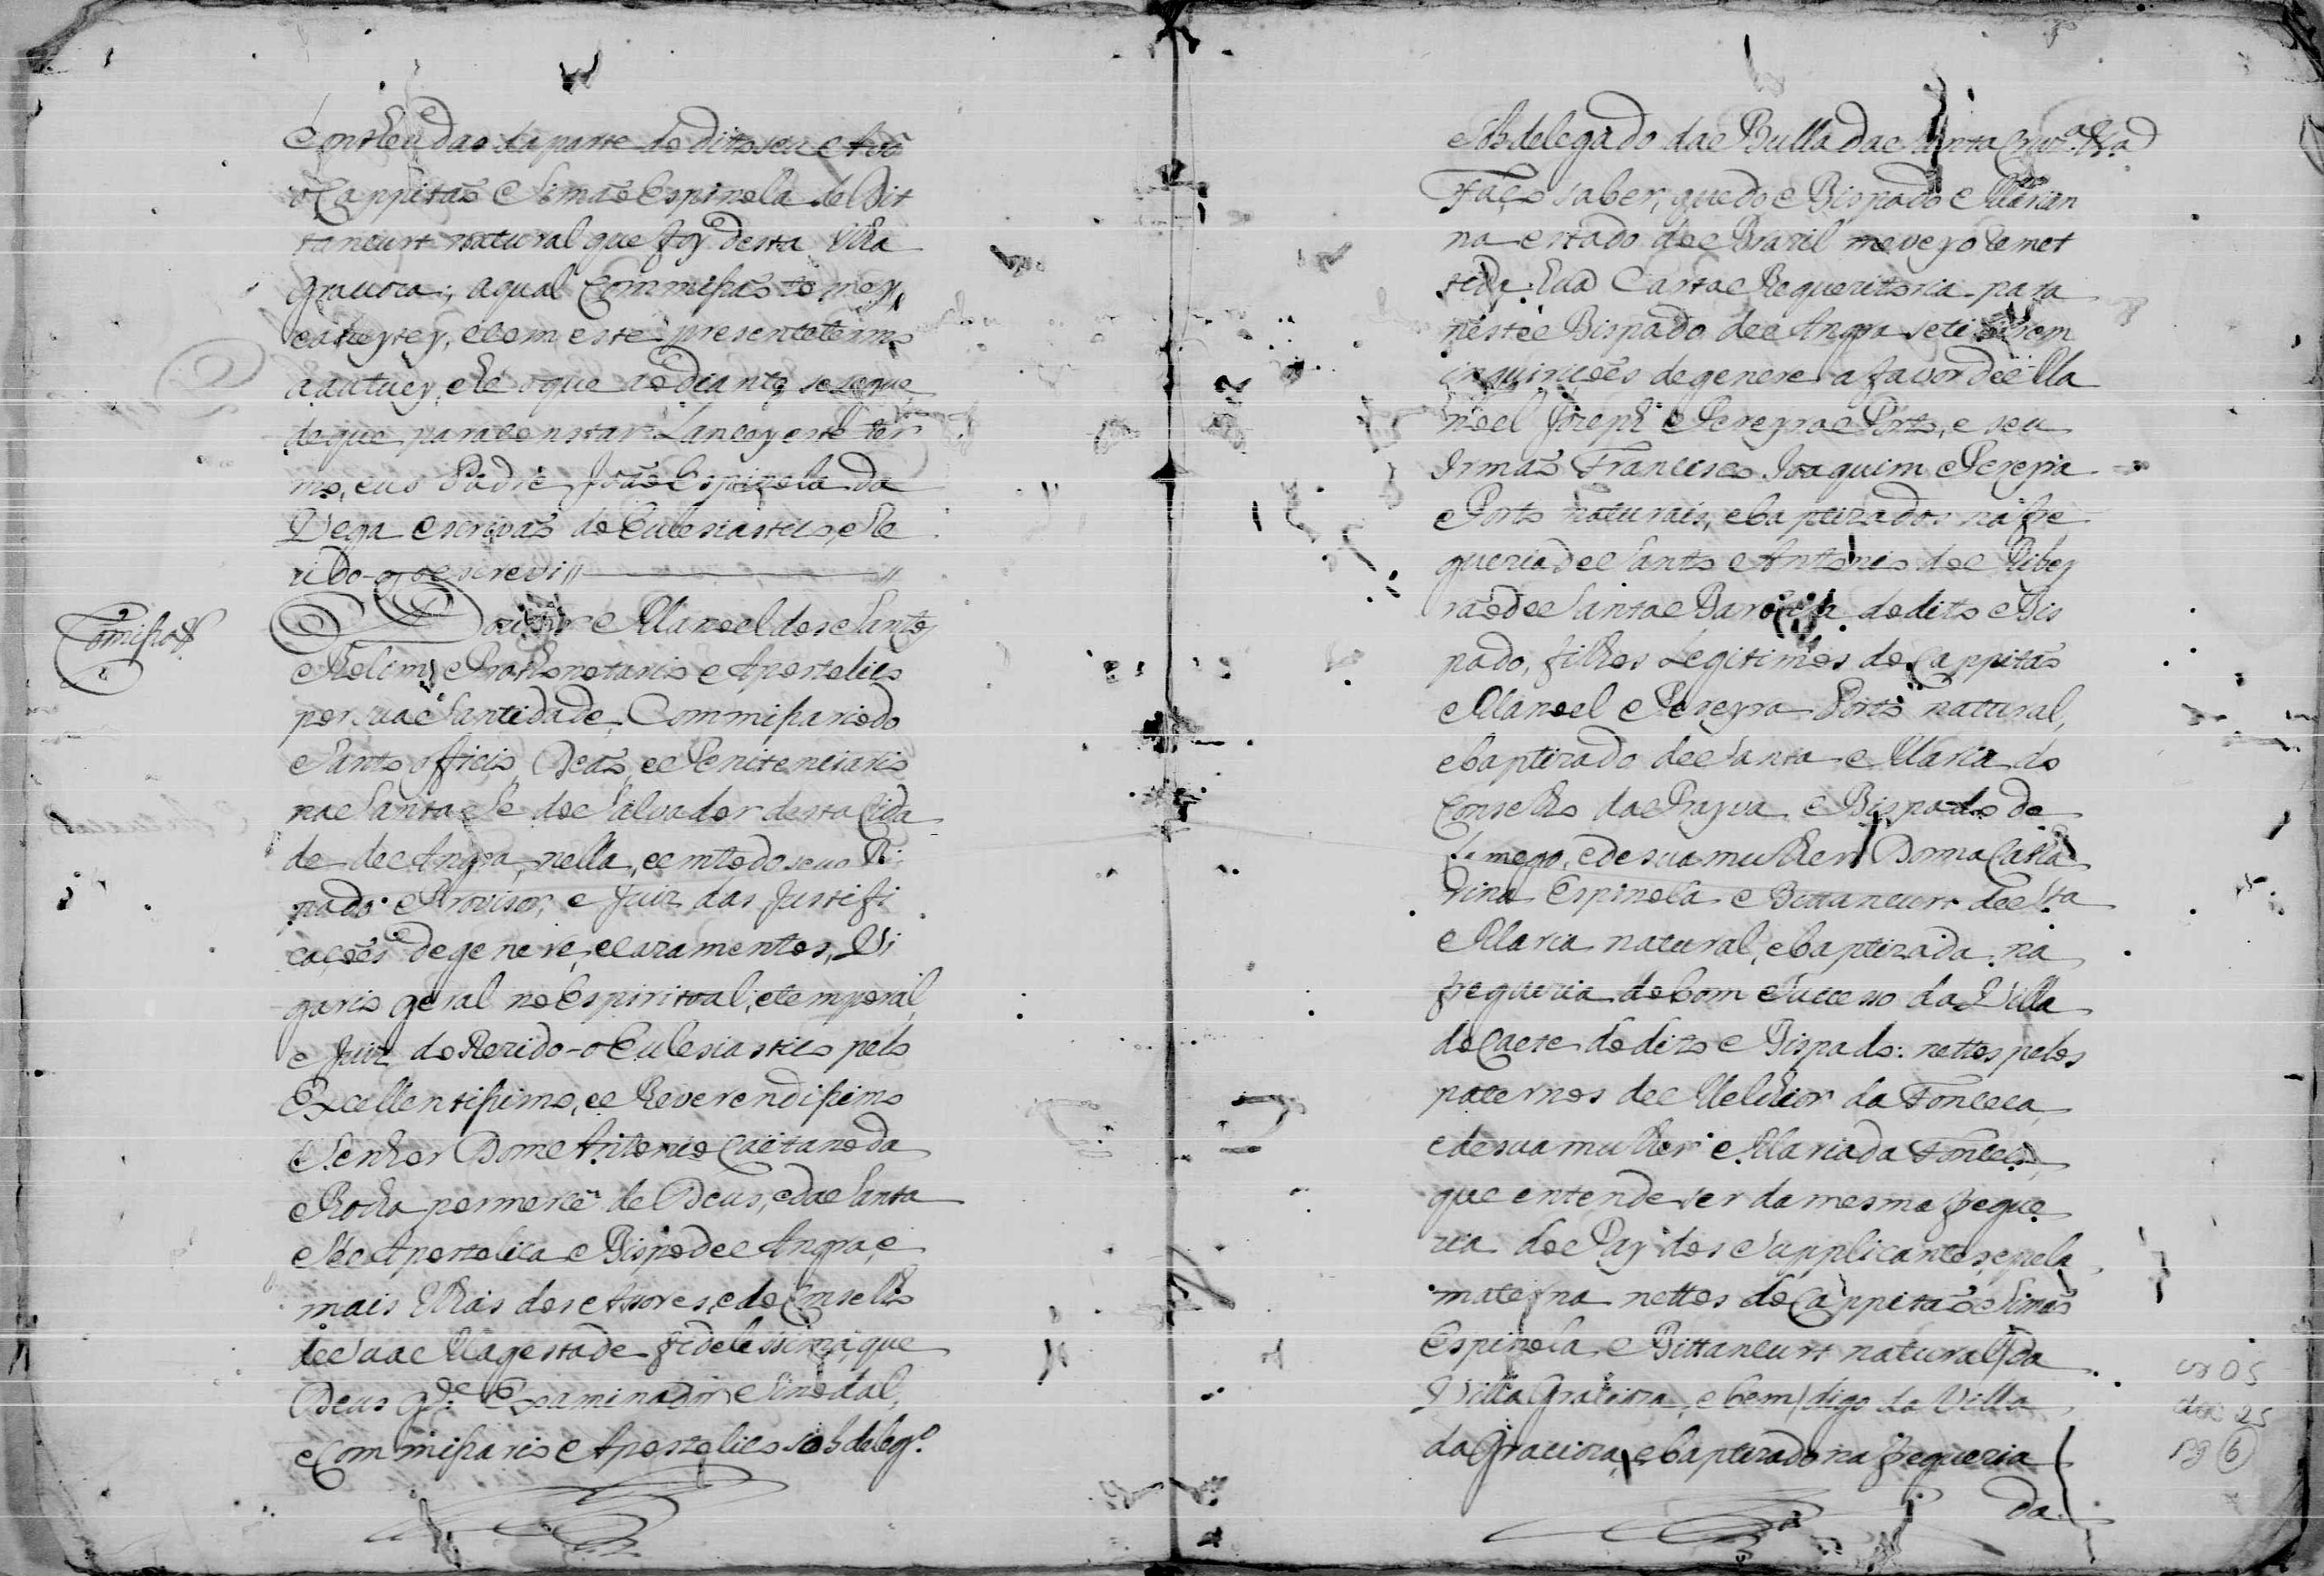 Contheudas da parte do dito seu Avô
o Cappitaõ Simaõ Espinola de Bit
tancurt natural que foy desta Ilha
Gracioza; a qual Commissaõ tomey,
e aseytey, e com este presente termo
a autuey, e hé o que ao diante se segue,
de que para constar Lancey este ter
mo, eu o Padre Joaõ Espinola da
Vega escrivaõ do Eclesiastico, e Re
zido-o, o escrevi //———//
Comissaõ
Doutor Manoel dos Santos
Rolim, Prothonotario Apostolico
por sua Santidade, Commissario do
Santo officio, Deaõ, e Penitenciario
na Santa Sé do Salvador desta Cida
de de Angra, nella, e em todo seu Bi
pado Provisor, e Juiz das Justifi
cações de genere, e cazamentos, Vi
gario geral no Espiritual, e temporal,
e Juiz do Rezido-o Eclesiastico pelo
Excellentissimo, e Reverendissimo
Senhor Dom Antonio Caetano da
Rocha por mercê de Deus, e da Santa
Sé Apostolica Bispo de Angra, e
mais Ilhas dos Asores, e do Conselho
de Sua Magestade fidelissima, que
Deus g.de Examinador Sinodal,
e Commissario Apostolico sobdeleg.o
Sobdelegado da Bulla da Santa Cruz.da
Faço saber, que do Bispado Marian
na estado do Brazil me veyo remet
tida hua Carta Requeritoria para
neste Bispado de Angra se tirarem
inquirições de genere a favor de Ma
noel Joseph Pereyra Porto, e seu
Irmaõ Francisco Joaquim Pereyra
Porto naturais, e baptizados na fre
guezia de Santo Antonio do Ribey
raõ de Santa Barbara do dito Bis
pado, filhos Legitimos do Cappitaõ
Manoel Pereyra Porto natural,
e baptizado de Santa Maria do
Conselho da Prayva Bispado de
Lamego, e de sua mulher Donna Catha
rina Espinola Bittancurt de S.ta
Maria natural, e baptizada na
freguezia do bom Sucesso da Villa
do Caete do dito Bispado: nettos pelos
paternos de Melchior da Fonceca,
e de sua mulher Maria da Fonceca,
que entende ser da mesma fregue
zia do Pay dos Supplicantes, e pela
materna nettos do Cappitaõ Simaõ
Espinola Bittancurt natural da
Villa Gracioza, e bem digo da Villa
da Gracioza, e baptizado na freguezia
da